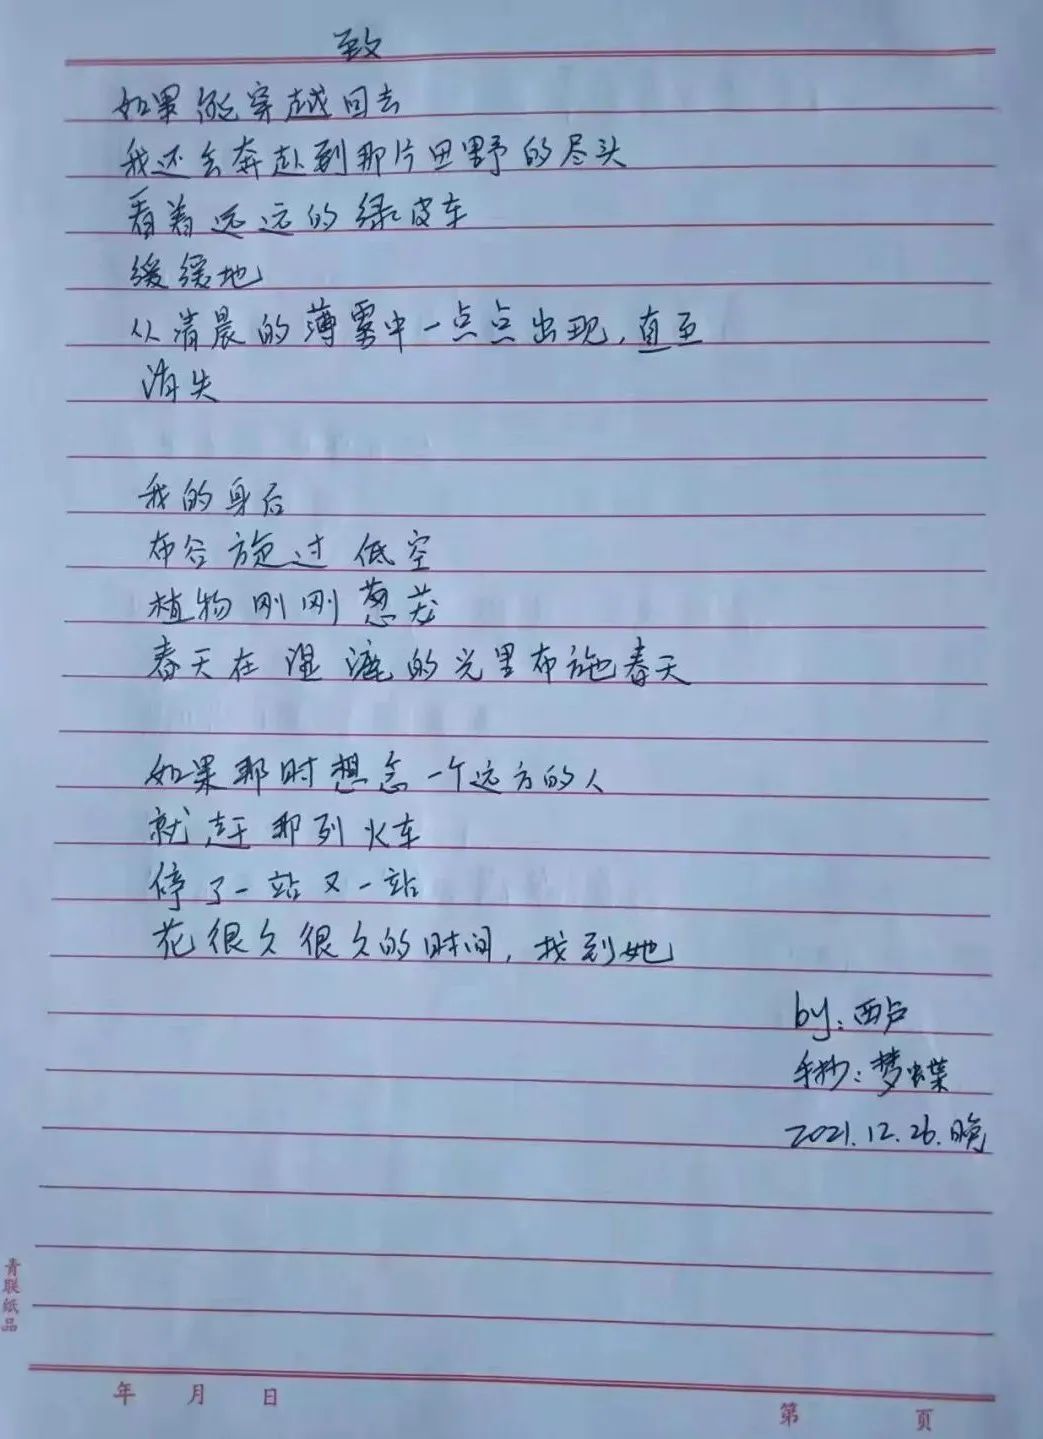 致
如果能穿越回去
我还会奔赴到那片田野的尽头
看着远远的绿皮车
缓缓地
从清晨的薄雾中一点点出现，直至
消失
我的身后
布谷旋过低空
植物刚刚葱茏
春天在湿漉的光里布施春天
如果那时想念一个远方的人
就赶那列火车
停了一站又一站
花很久很久的时间，找到她
by：西卢
手抄：梦蝶
2021.12.26.晚
青联纸品
年 月 日
第 页